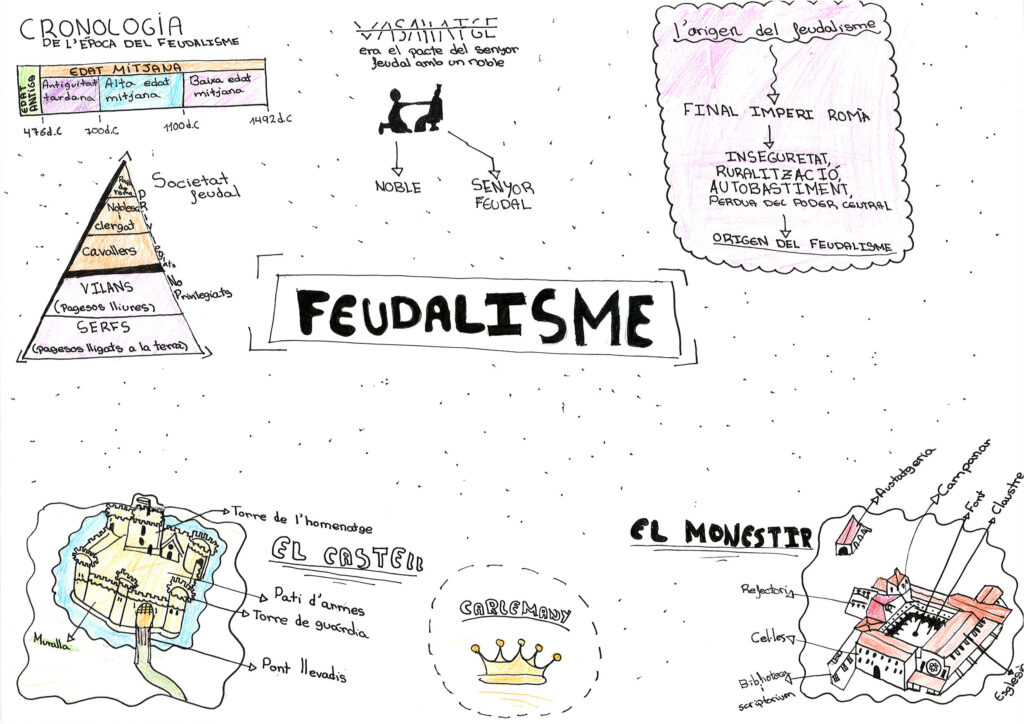 CRONOLOGÍA
DE L'ÈPOCA DEL FEUDALISME
EDAT ANTIGA
EDAT MITJANA
Antiguitat
tardana
Alta edat
mitjana
Baixa edat
mitjana
476d.C
700d.C
1100d.C
1492d.C
Societat
feudal
Papa
de
roma
Nobles
i
clergat
Cavallers
VILANS
(Pagesos lliures)
SERFS
(pagesos lligats a la terra)
No
Privilegiats
VASALLATGE
era el pacte del senyor
feudal amb un noble
NOBLE
SENYOR
FEUDAL
L'origen del feudalisme
FINAL IMPERI ROMÀ
INSEGURETAT,
RURALITZACIÓ,
AUTOBASTIMENT,
PERDUA DEL PODER CENTRAL
ORIGEN DEL FEUDALISME
FEUDALISME
EL CASTELL
Torre de l'homenatge
Pati d'armes
Torre de guàrdia
Pont llevadis
Muralla
CARLEMANY
EL MONESTIR
Austatgeria
Campanar
Font
Claustre
Refectori
Cel·les
Biblioteca i
scriptorium
Església